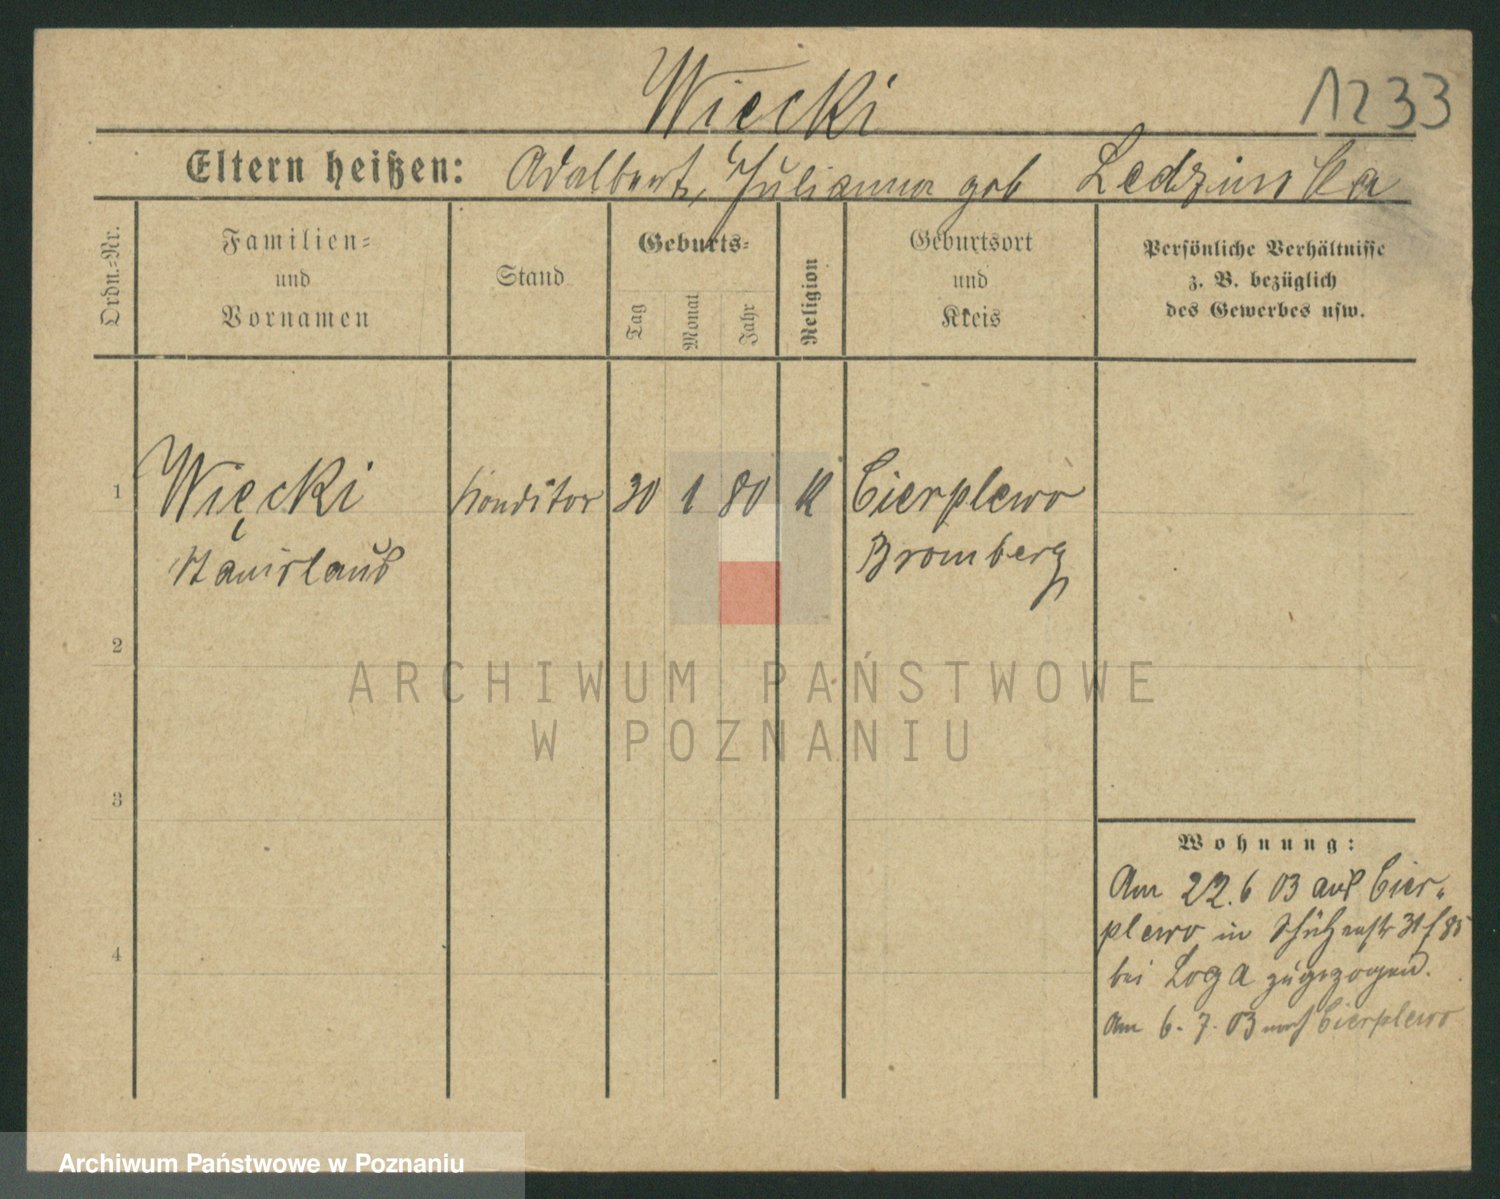 Wiecki
1233
Eltern heißen: Adalbert, Julianna geb Ledzinska
Ordn.-Nr.
Familien-
und
Vornamen
Stand
Geburts-
Tag
Monat
Jahr
Religion
Geburtsort
und
Kreis
Persönliche Verhältnisse
z. B. bezüglich
des Gewerbes usw.
1
Więcki
Stanislaus
Konditor
30
1
80
K
Cierplewo
Bromberg
2
3
4
Wohnung:
Am 22.6 03 aus Cier-
plewo in Schützenstr 31
bei Loga zugezogen.
Am 6. 7. 03 nach Cierplewo
ARCHIWUM PAŃSTWOWE
W POZNANIU
Archiwum Państwowe w Poznaniu